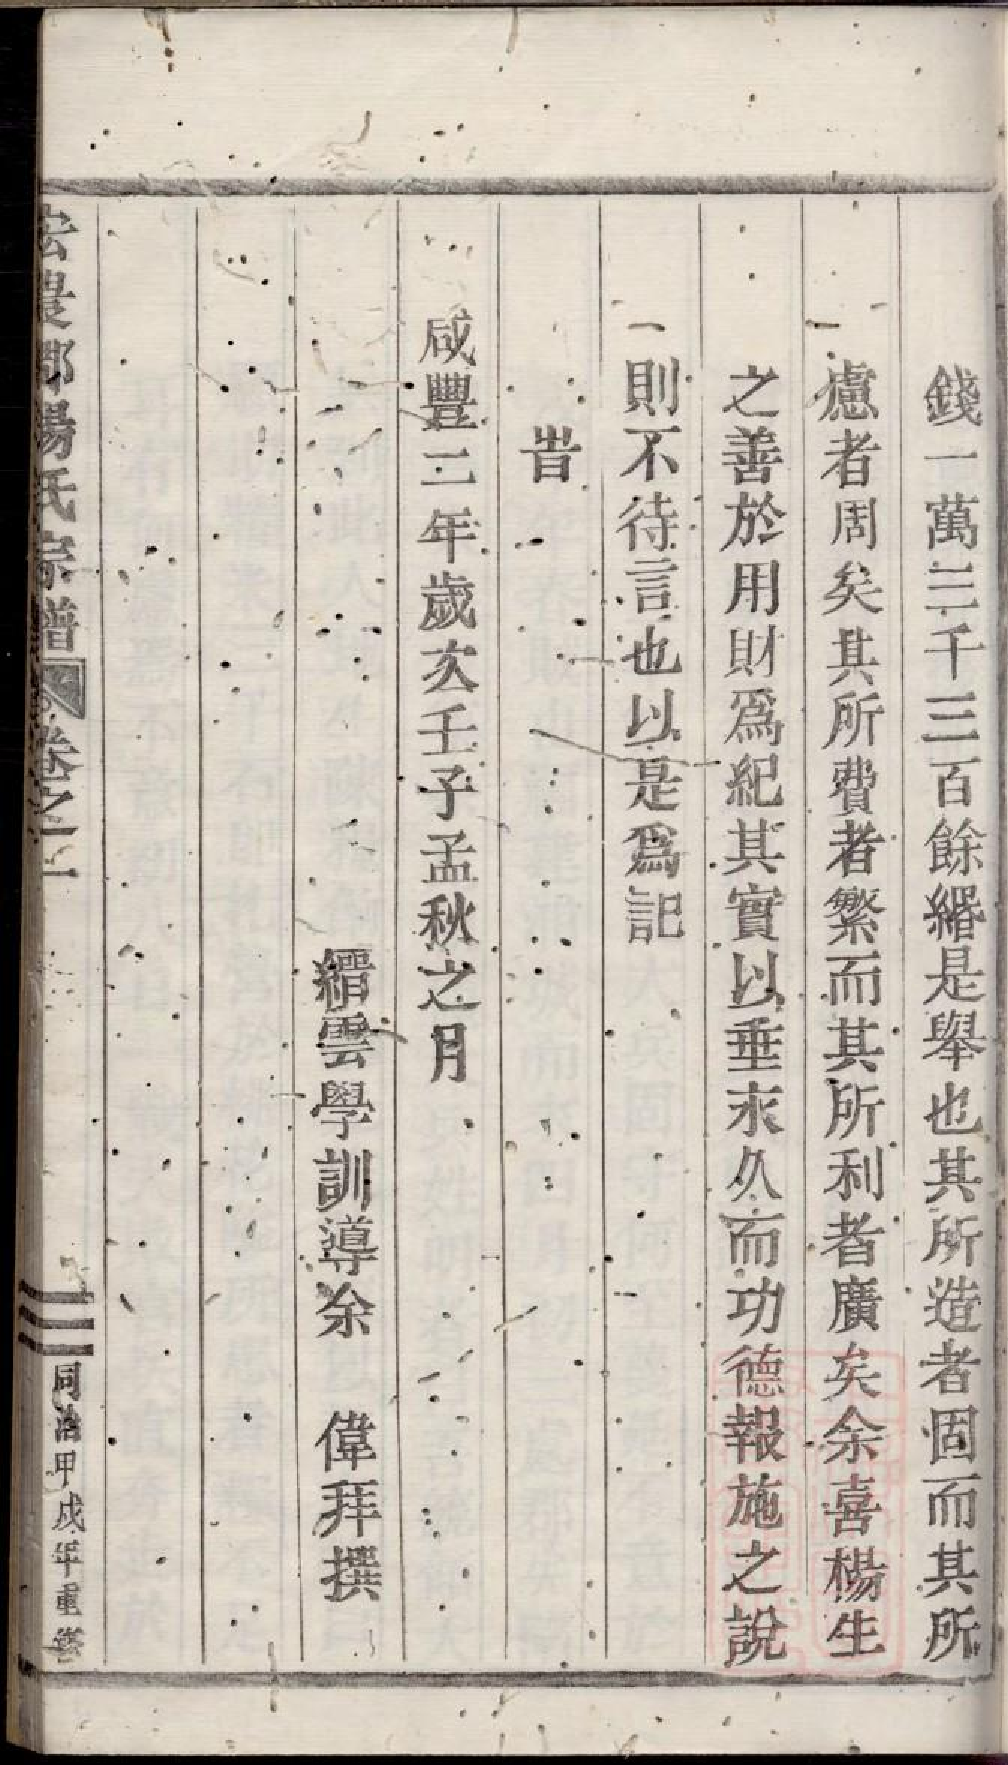 錢一萬三千三百餘緡是舉也其所造者固而其所
慮者周矣其所費者繁而其所利者廣矣余喜楊生
之善於用財爲紀其實以垂永久而功德報施之說
則不待言也以是爲記
旹
咸豐二年歲次壬子孟秋之月
縉雲學訓導余　偉拜撰
宏農郡楊氏宗譜　卷之二　同治甲戌年重鐫